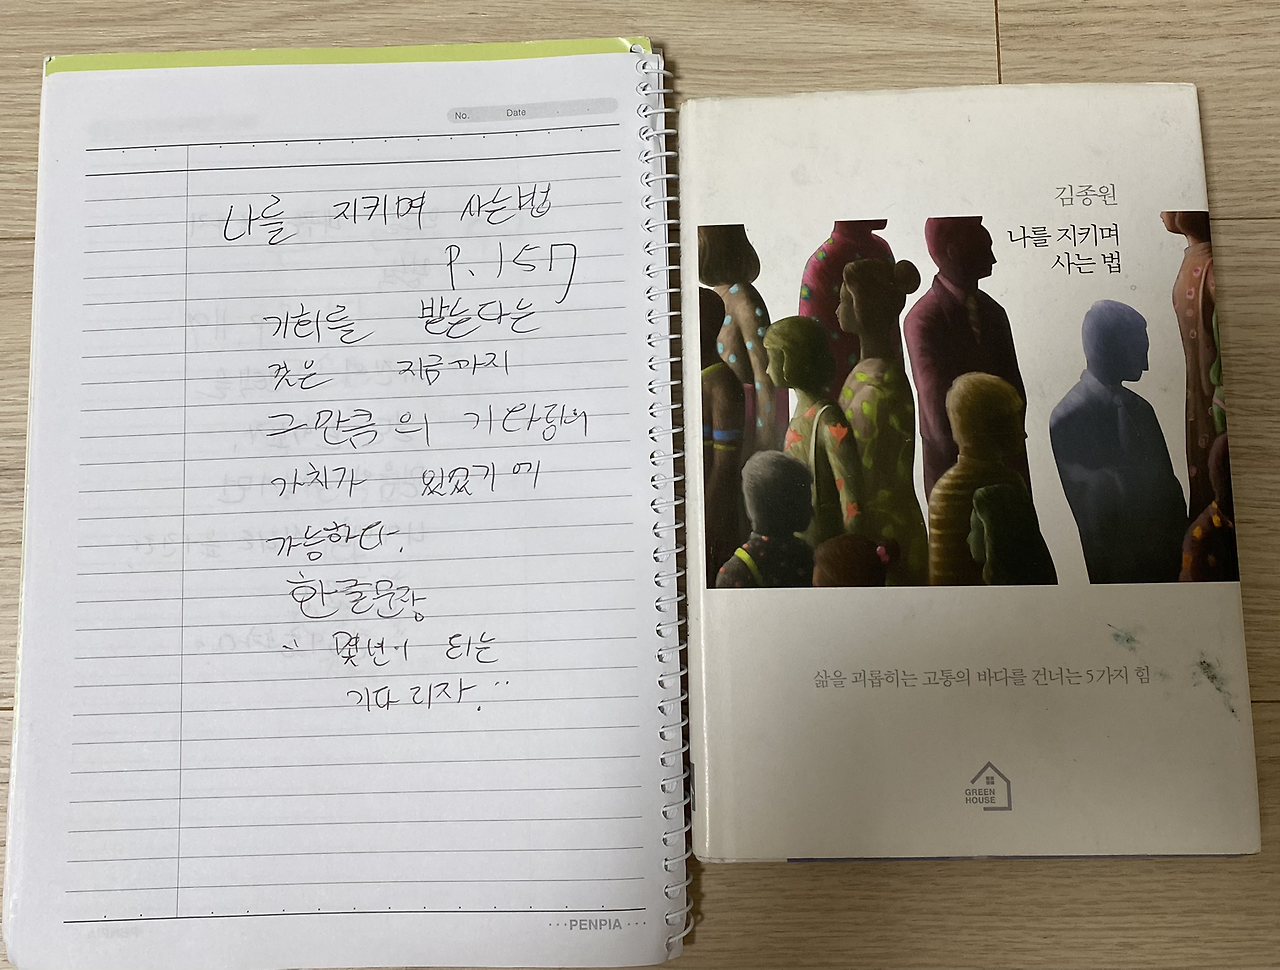 No. Date
나를 지키며 사는법
P. 157
기회를 받는다는
것은 지금까지
그만큼의 기다림의
가치가 있었기에
가능하다.
한글문장
몇년이 되는
기다리자.
PENPIA
김종원
나를 지키며
사는 법
삶을 괴롭히는 고통의 바다를 건너는 5가지 힘
GREEN
HOUSE